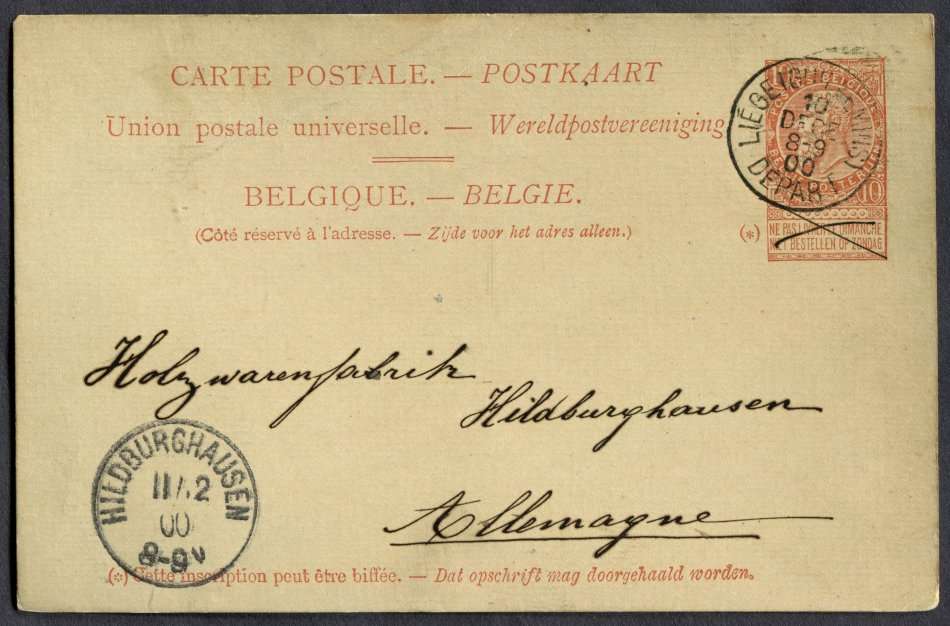 CARTE POSTALE. — POSTKAART
Union postale universelle. — Wereldpostvereeniging
BELGIQUE. — BELGIE.
(Côté réservé à l'adresse. — Zijde voor het adres alleen.)
LIÉGE (GUILLEMINS)
10
DÉCE
8-9
00
DÉPART
10
(*)
NE PAS LIVRER LE DIMANCHE
NIET BESTELLEN OP ZONDAG
Holzwarenfabrik
Hildburghausen
Allemagne
HILDBURGHAUSEN
11 12
00
8-9V
(*) Cette inscription peut être biffée. — Dat opschrift mag doorgehaald worden.